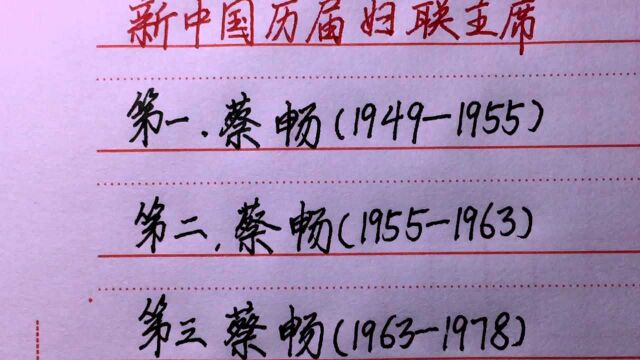 新中国历届妇联主席
第一.蔡畅(1949-1955)
第二.蔡畅(1955-1963)
第三蔡畅(1963-1978)